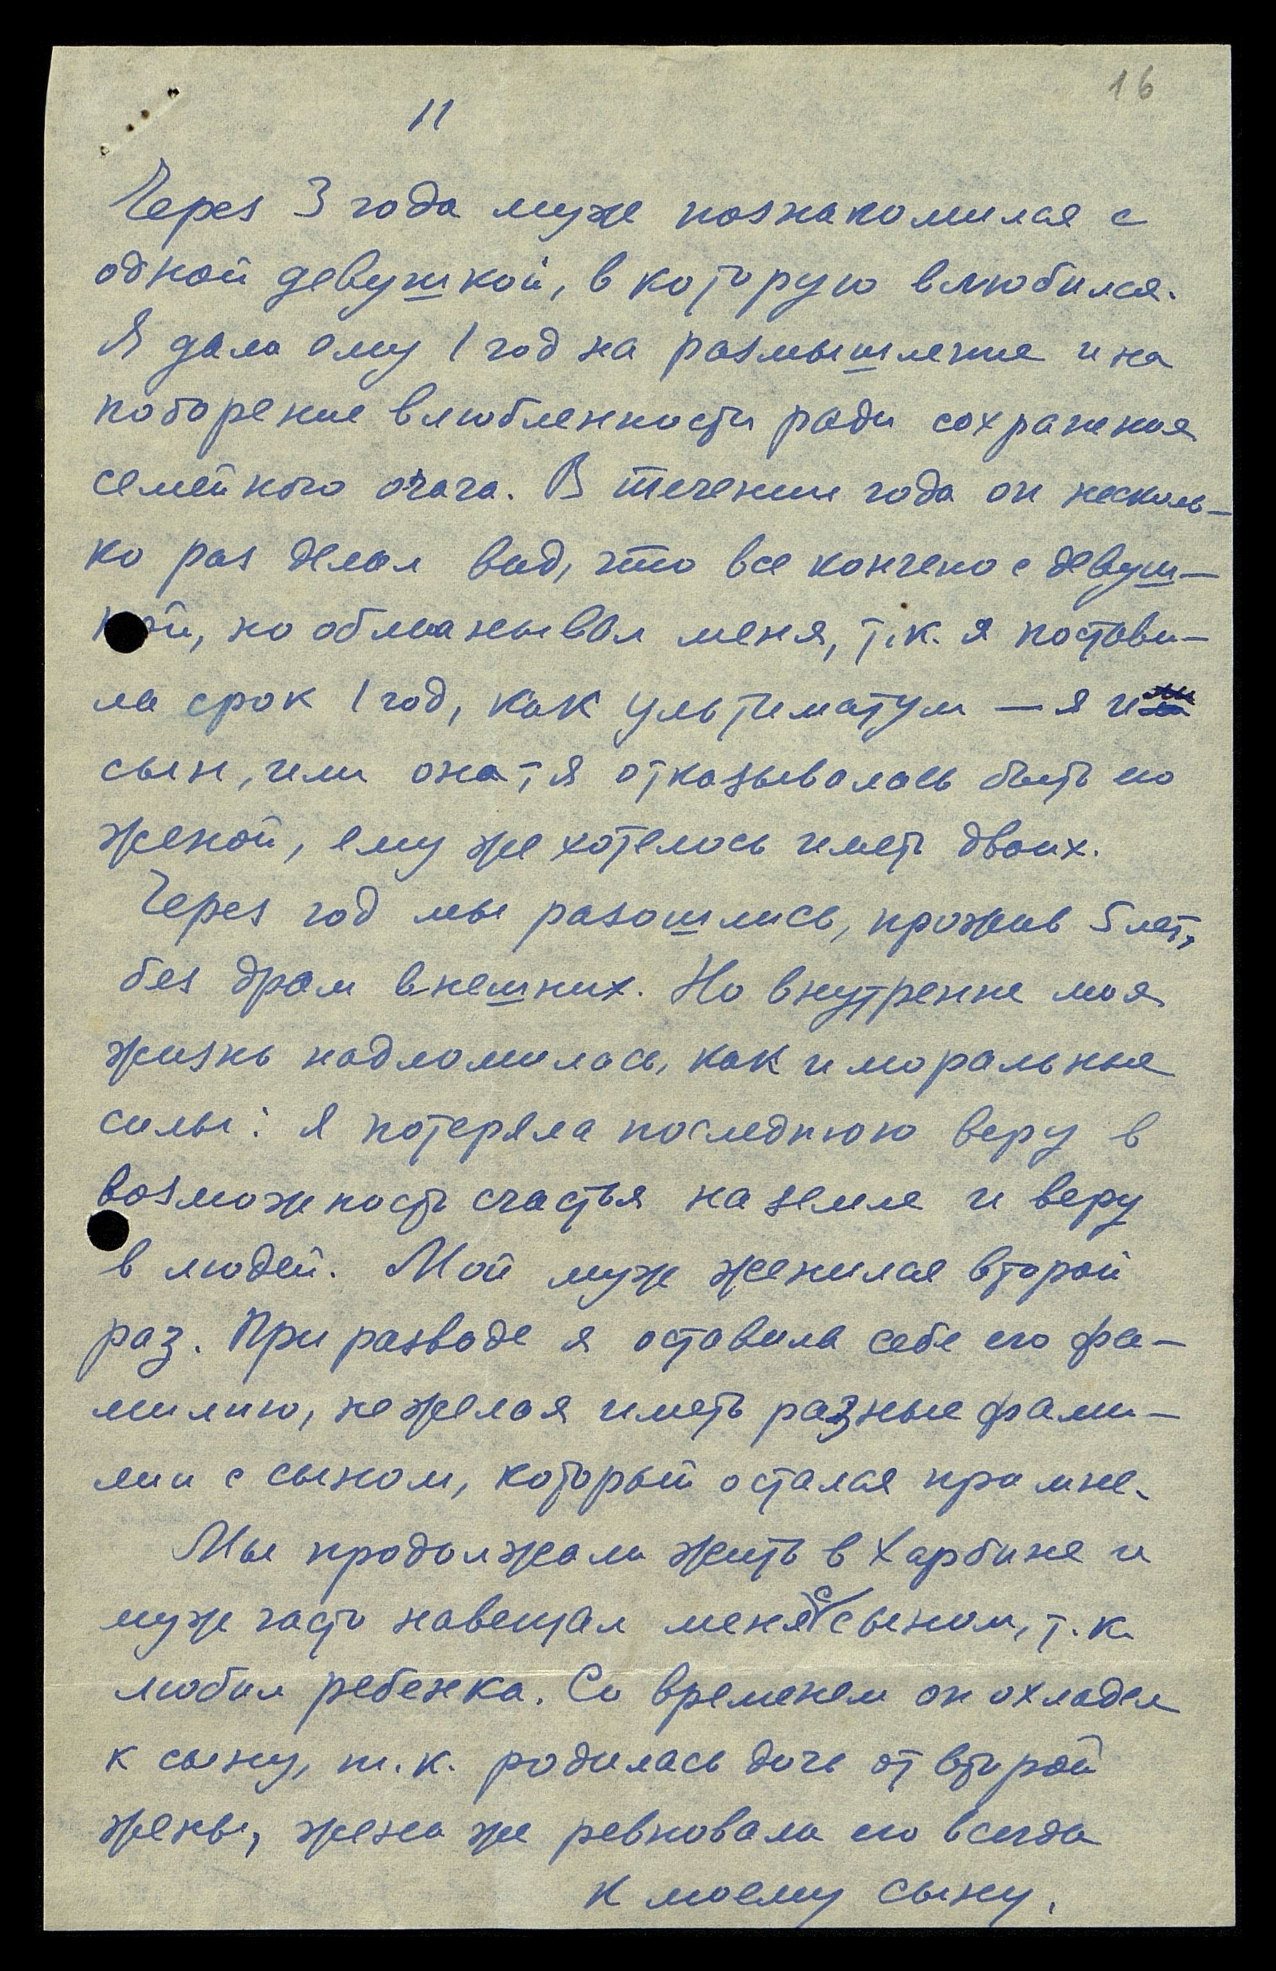 16
11
Через 3 года муж познакомился с
одной девушкой, в которую влюбился.
Я дала ему 1 год на размышление и на
поборение влюбленности ради сохранения
семейного очага. В течении года он несколь-
ко раз делал вид, что все кончено с девуш-
кой, но обманывал меня, т.к. я постави-
ла срок 1 год, как ультиматум — я и
сын, или она — я отказывалась быть его
женой, ему же хотелось иметь двоих.
Через год мы разошлись, прожив 5 лет,
без драм внешних. Но внутренне моя
жизнь надломилась, как и моральные
силы: я потеряла последнюю веру в
возможность счастья на земле и веру
в людей. Мой муж женился второй
раз. При разводе я оставила себе его фа-
милию, не желая иметь разные фами-
лии с сыном, который остался при мне.
Мы продолжали жить в Харбине и
муж часто навещал меня с сыном, т.к.
любил ребенка. Со временем он охладел
к сыну, т.к. родилась дочь от второй
жены, жена же ревновала его всегда
к моему сыну.